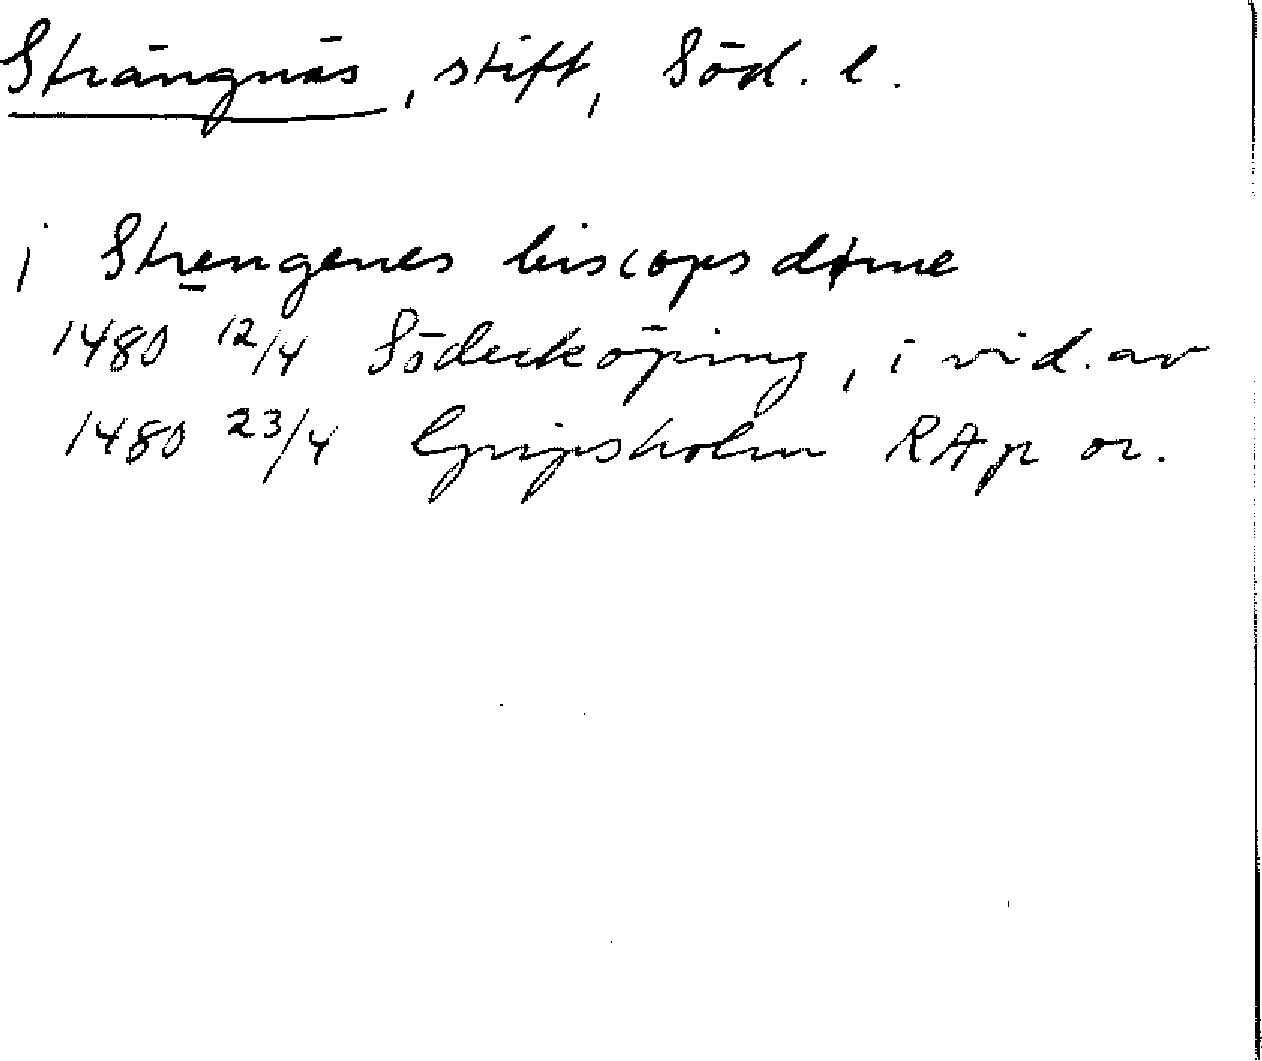 Strängnäs, stift, Söd. l.
i Strengenes biscops døme
1480 12/4 Söderköping, i vid. av
1480 23/4 Gripsholm RAp or.